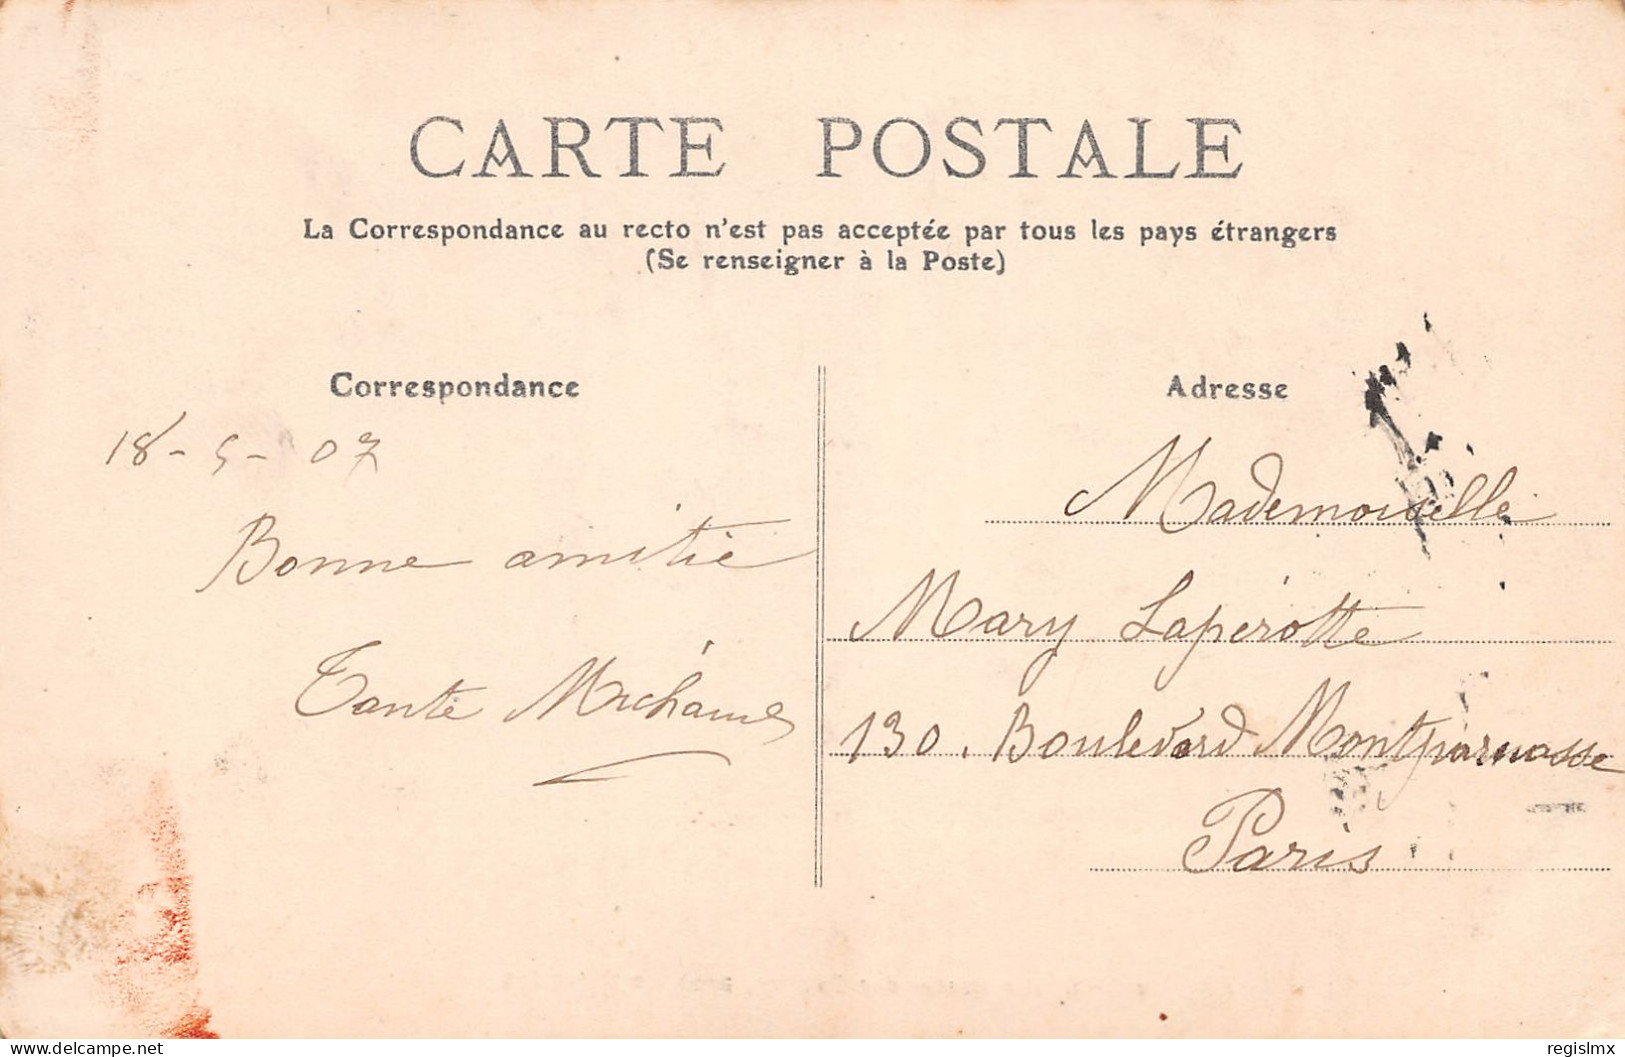 CARTE POSTALE
La Correspondance au recto n'est pas acceptée par tous les pays étrangers
(Se renseigner à la Poste)
Correspondance
18-5-07
Bonne amitié
Tante
Adresse
Mademoiselle
Mary Lapérotte
130. Boulevard Montparnasse
Paris
www.delcampe.net
regislmx